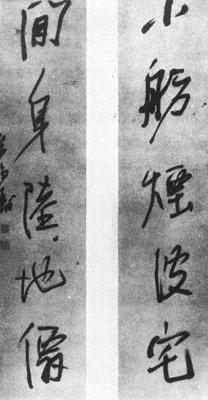 小舫煙波宅
閒身陸地僊